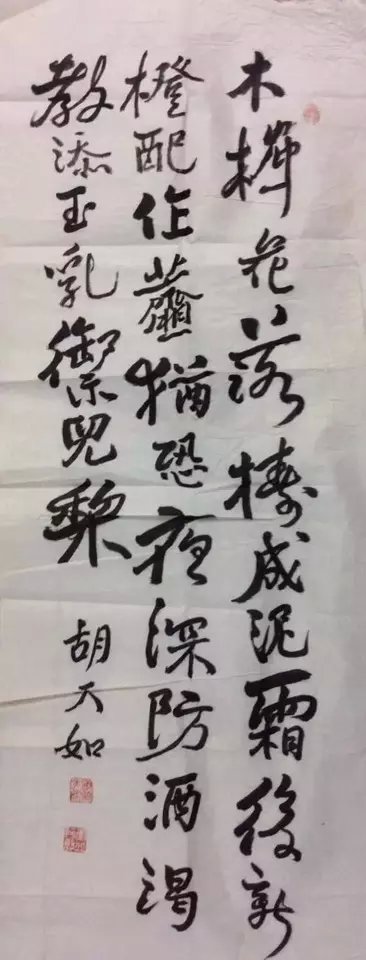 木樨花落捣成泥霜後新
橙配作虀猶恐夜深防酒渴
教添玉乳御兒梨
胡天如